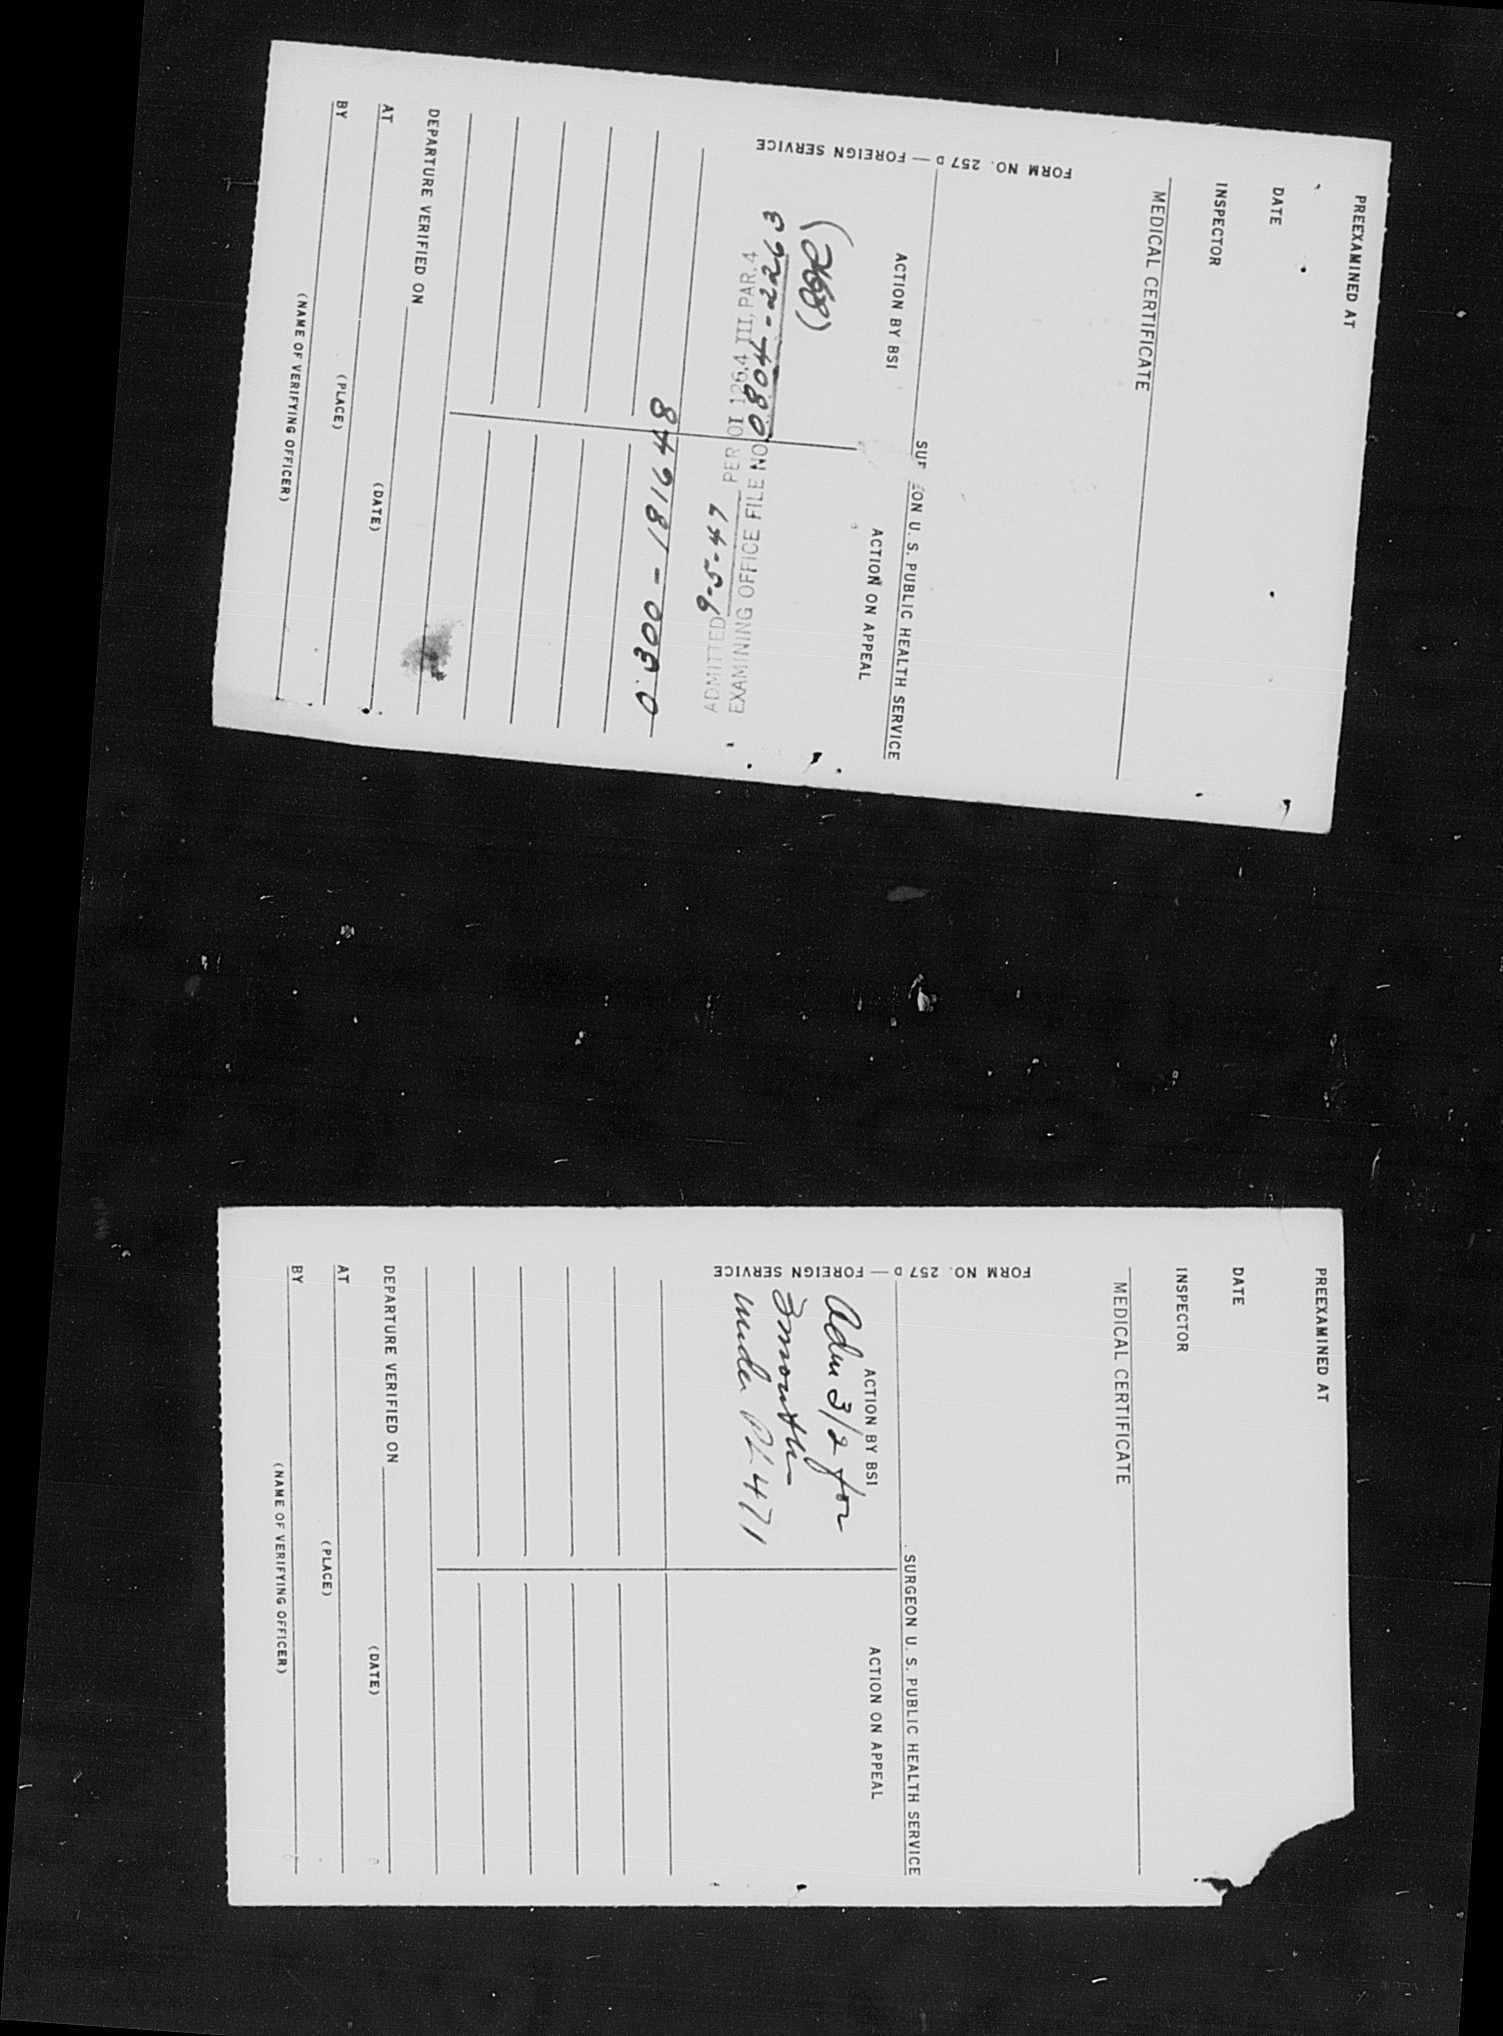 PREEXAMINED AT
DATE
INSPECTOR
MEDICAL CERTIFICATE
FORM NO. 257 D — FOREIGN SERVICE
SUR EON U. S. PUBLIC HEALTH SERVICE
ACTION BY BSI
ACTION ON APPEAL
(268)
EXAMINING OFFICE FILE NO.
PER OI 126.4 III PAR. 4
ADMITTED 6-5-47
DEPARTURE VERIFIED ON
(DATE)
AT
(PLACE)
BY
(NAME OF VERIFYING OFFICER)
PREEXAMINED AT
DATE
INSPECTOR
MEDICAL CERTIFICATE
FORM NO. 257 D — FOREIGN SERVICE
SURGEON U. S. PUBLIC HEALTH SERVICE
ACTION BY BSI
ACTION ON APPEAL
Adm 3/2 for
3 months
under PL 471
DEPARTURE VERIFIED ON
(DATE)
AT
(PLACE)
BY
(NAME OF VERIFYING OFFICER)